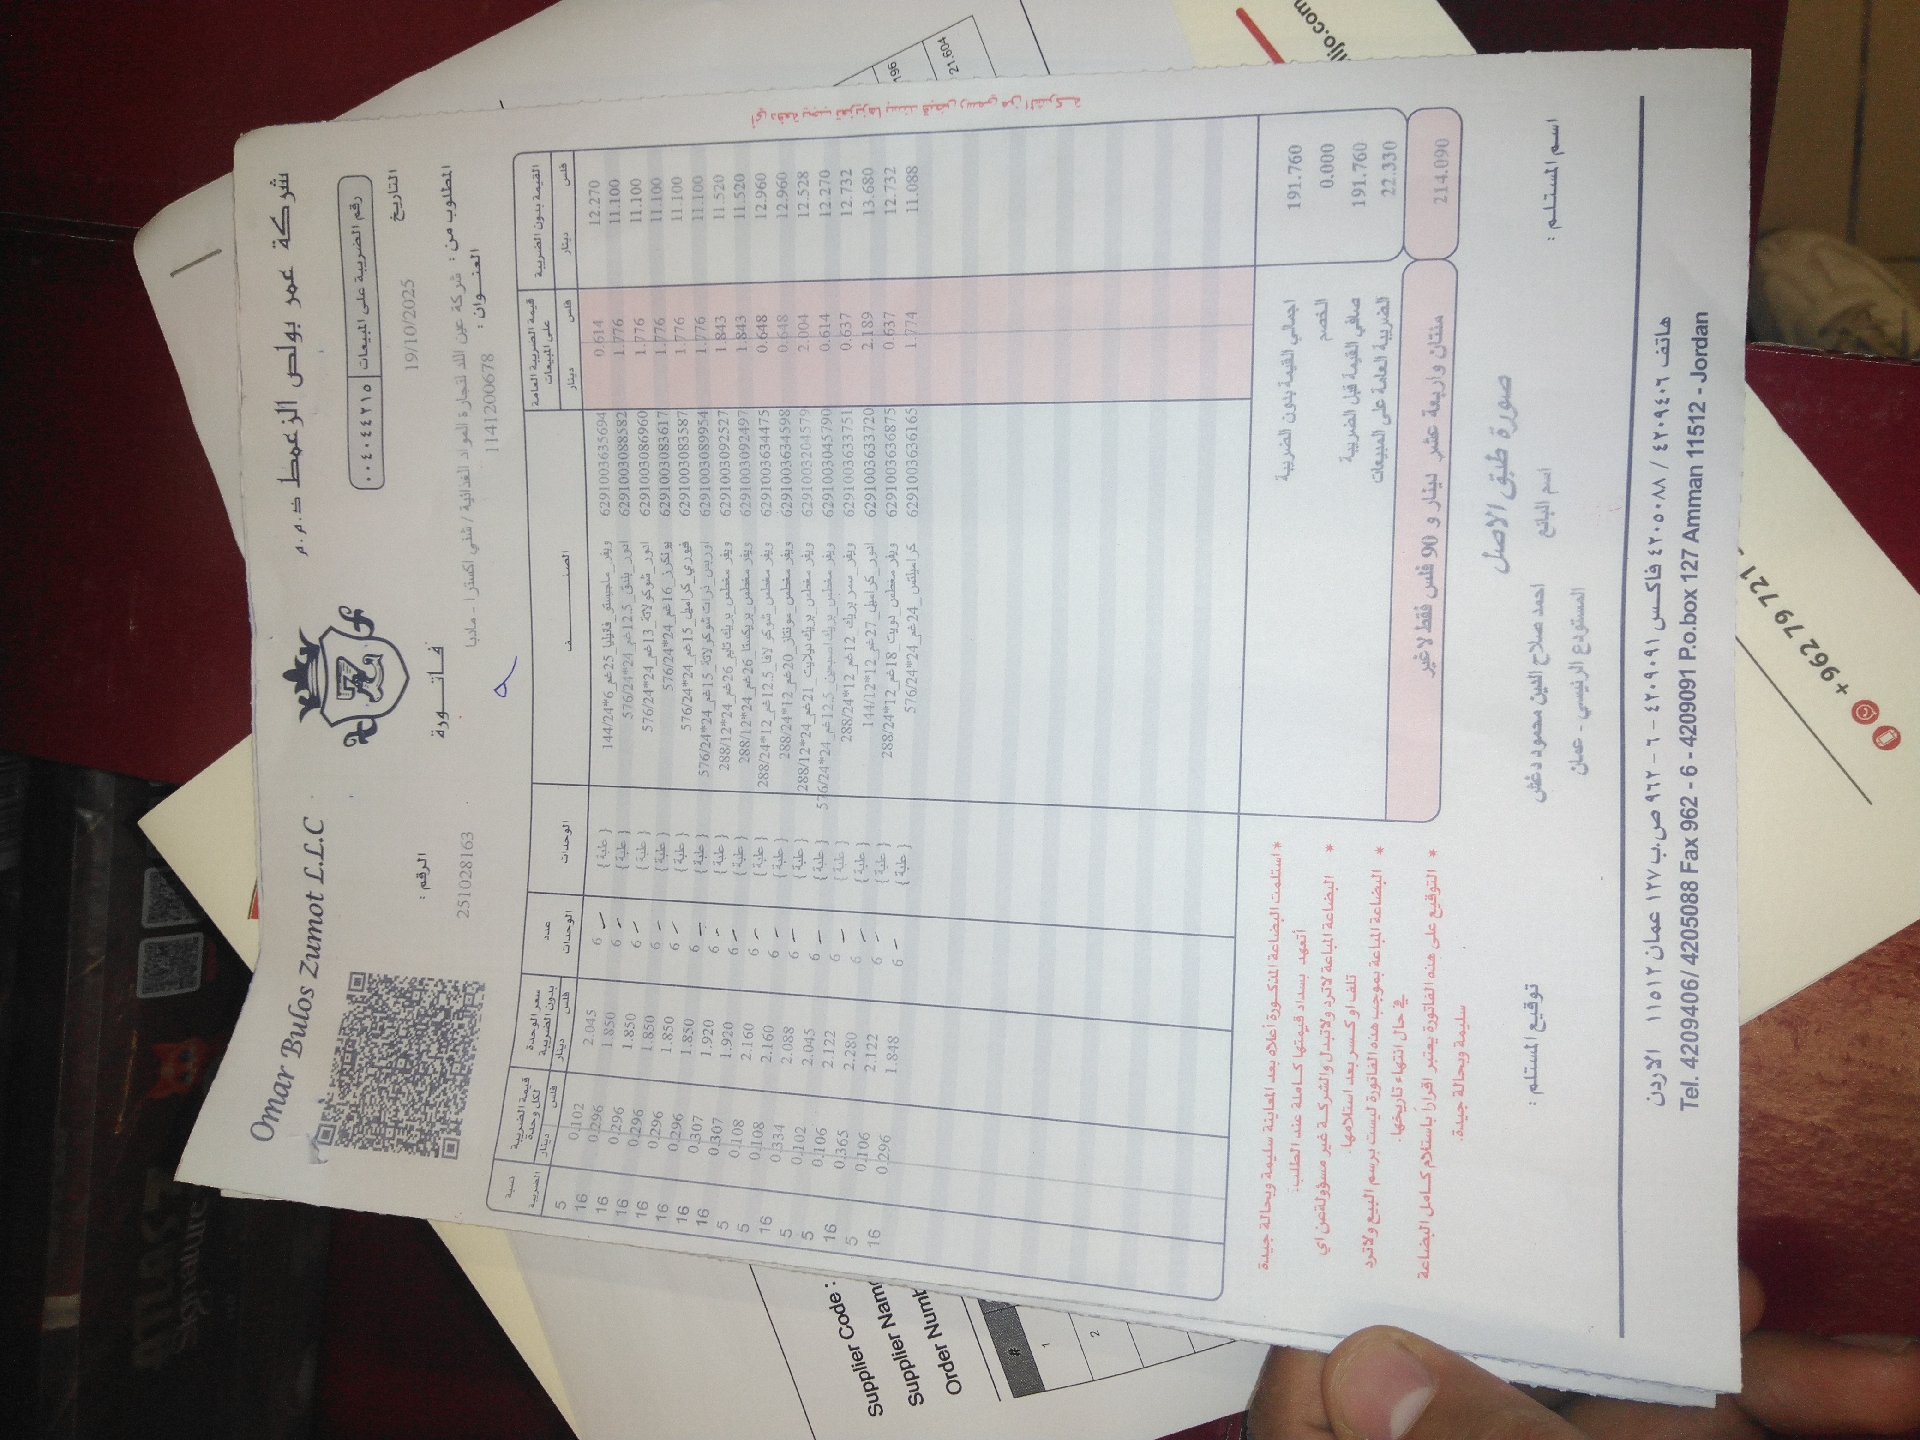 شركة عمر بولص الزعمط ذ.م.م
Omar Bulos Zumot L.L.C
رقم الضريبة على المبيعات ٠٠٤٠٤٤٢١٥
فــاتــــورة
التاريخ
19/10/2025
الرقم :
251028163
المطلوب من : شركة عين اللد لتجارة المواد الغذائية / شني اكسترا - مادبا
العنــوان :
1141200678
القيمة بدون الضريبة قيمة الضريبة العامة على المبيعات الصنــــــــف الوحدات عدد الوحدات سعر الوحدة بدون الضريبة قيمة الضريبة لكل وحدة نسبة الضريبة
فلس دينار فلس دينار فلس دينار فلس دينار
12.270 0.614 6291003635694 144/24*6 ويفر_ماجيستو_فانيليا 25غم { علبة } 6 2.045 0.102 5
11.100 1.776 6291003088582 576/24*24 12.5غم { علبة } 6 1.850 0.296 16
11.100 1.776 6291003086960 576/24*24 شوكولاته_13غم { علبة } 6 1.850 0.296 16
11.100 1.776 6291003083617 576/24*24 يونكرز_16غم { علبة } 6 1.850 0.296 16
11.100 1.776 6291003083587 576/24*24 كراميل_15غم { علبة } 6 1.850 0.296 16
11.100 1.776 6291003089954 576/24*24 ذرات شوكولاتة_15غم { علبة } 6 1.850 0.296 16
11.520 1.843 6291003092527 288/12*24 ويفر مغطس_بريك تايم_26غم { علبة } 6 1.920 0.307 16
11.520 1.843 6291003092497 288/12*24 ويفر مغطس_بريكستا_26غم { علبة } 6 1.920 0.307 16
12.960 0.648 6291003634475 288/24*12 ويفر مغطس_شوكو لافا_12.5غم { علبة } 6 2.160 0.108 5
12.960 0.648 6291003634598 288/24*12 ويفر مغطس_مونتاز_20غم { علبة } 6 2.160 0.108 5
12.528 2.004 6291003204579 288/12*24 ويفر مغطس_بريك ديلايت_21غم { علبة } 6 2.088 0.334 16
12.270 0.614 6291003045790 576/24*24 ويفر مغطس_بريك 12.5غم { علبة } 6 2.045 0.102 5
12.732 0.637 6291003633751 288/24*12 ويفر_سمر بريك_12غم { علبة } 6 2.122 0.106 5
13.680 2.189 6291003633720 144/12*12 كراميل_27غم { علبة } 6 2.280 0.365 16
12.732 0.637 6291003636875 288/24*12 ويفر مغطس_دويت_18غم { علبة } 6 2.122 0.106 5
11.088 1.774 6291003636165 576/24*24 24غم { علبة } 6 1.848 0.296 16
191.760 اجمالي القيمة بدون الضريبة
0.000 الخصم
191.760 صافي القيمة قبل الضريبة
22.330 الضريبة العامة على المبيعات
214.090 مئتان واربعة عشر دينار و 90 فلس فقط لا غير
* استلمت البضاعة المذكورة أعلاه بعد المعاينة سليمة وبحالة جيدة
أتعهد بسداد قيمتها كاملة عند الطلب.
* البضاعة المباعة لا ترد ولا تبدل والشركة غير مسؤولة عن اي
تلف او كسر بعد استلامها.
* البضاعة المباعة بموجب هذه الفاتورة ليست برسم البيع ولا ترد
في حال انتهاء تاريخها.
* التوقيع على هذه الفاتورة يعتبر اقراراً باستلام كامل البضاعة
سليمة وبحالة جيدة.
أي دفعة يجب تعزيزها بسند قبض رسمي من الشركة
صورة طبق الاصل
اسم المستلم :
اسم البائع
احمد صلاح الدين محمود دغش
المستودع الرئيسي - عمان
توقيع المستلم :
هاتف ٤٢٠٩٤٠٦ / ٤٢٠٥٠٨٨ فاكس ٤٢٠٩٠٩١ - ٦ - ٩٦٢ ص.ب ١٢٧ عمان ١١٥١٢ الاردن
Tel. 4209406/ 4205088 Fax 962 - 6 - 4209091 P.o.box 127 Amman 11512 - Jordan
Supplier Code :
Supplier
Order
#
1
2
196
21.604
+962 79 721
Signature